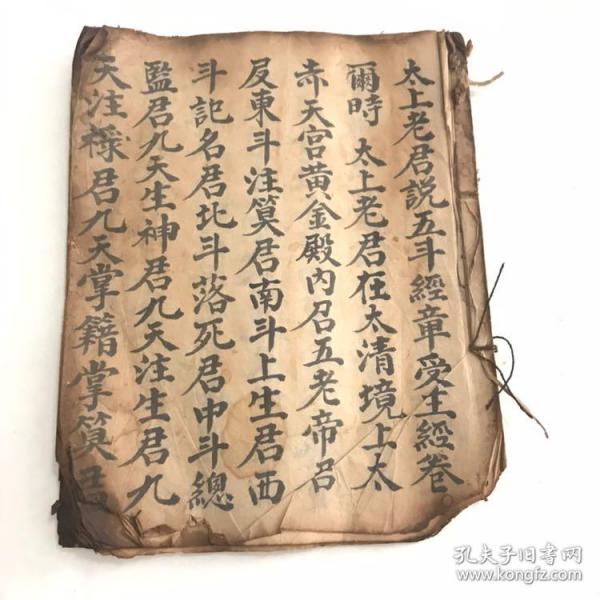 太上老君説五斗經章受生經卷
爾時 太上老君在太清境上太
赤天宮黄金殿内召五老帝君
及東斗注筭君南斗上生君西
斗記名君北斗落死君中斗總
監君九天生神君九天注生君九
天注祿君九天掌籍掌筭君
孔夫子旧书网
www.kongfz.com